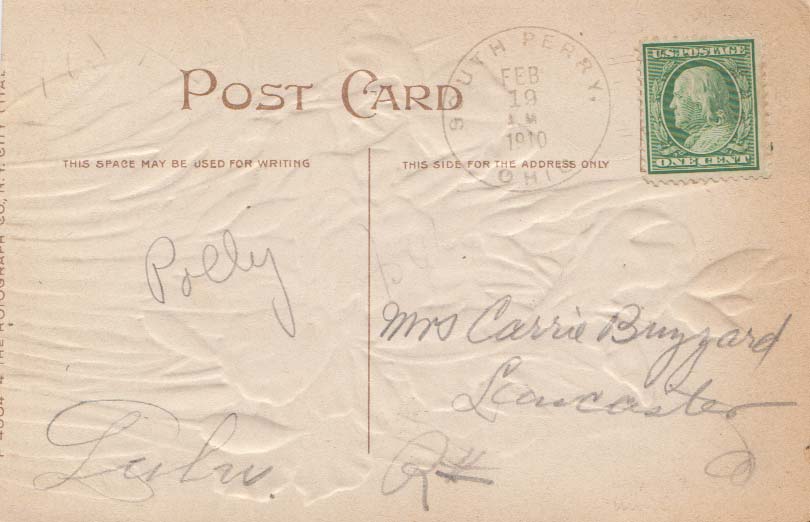 POST CARD
SOUTH PERRY,
FEB
19
A M
1910
OHIO
U.S. POSTAGE
ONE CENT
THIS SPACE MAY BE USED FOR WRITING
THIS SIDE FOR THE ADDRESS ONLY
Polly
Mrs Carrie Buzzard
Lancaster
Lulu
THE ROTOGRAPH CO., N.Y. CITY